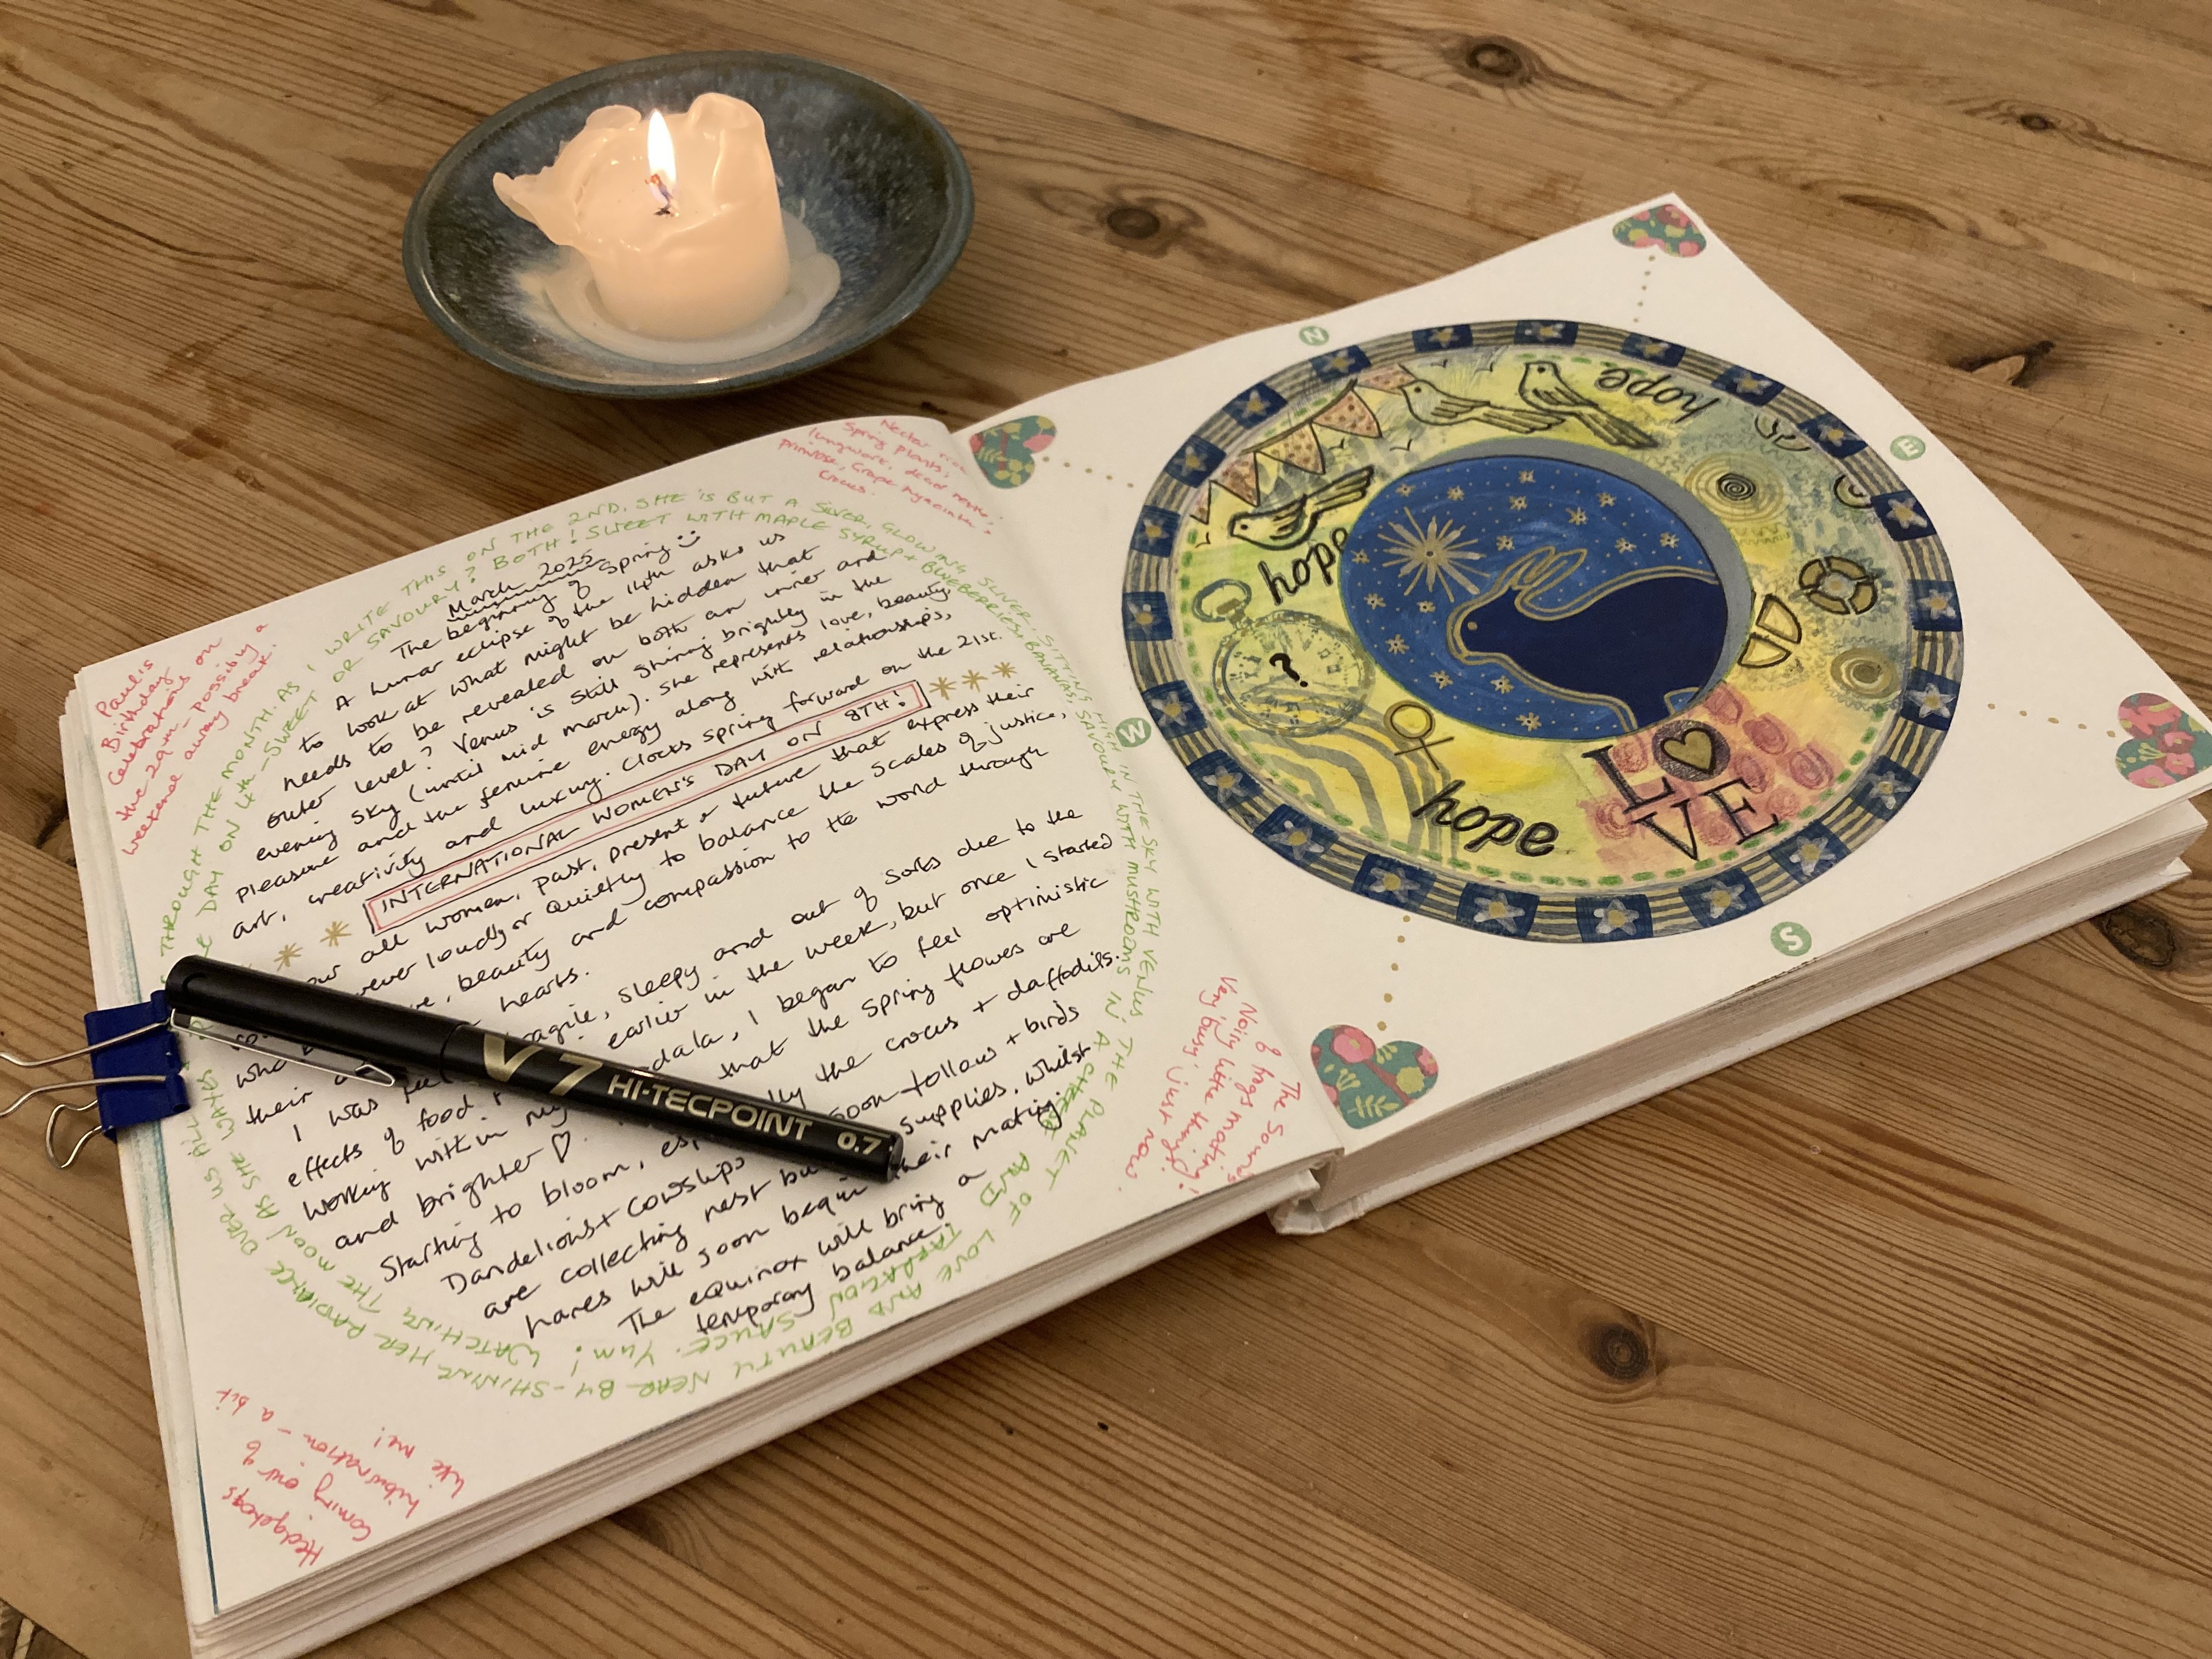 March 2025
The beginning of Spring
A lunar eclipse of the 14th asks us
to look at what might be hidden that
needs to be revealed on both an inner and
outer level? Venus is still shining brightly in the
evening sky (until mid march). She represents love, beauty,
pleasure and the feminine energy along with relationships,
art, creativity and luxury. Clocks spring forward on the 21st.
INTERNATIONAL WOMEN'S DAY ON 8TH!
all women, past, present & future that express their
ever loudly or quietly to balance the scales of justice,
beauty and compassion to the world through
their hearts.
I was fragile, sleepy and out of sorts due to the
effects of food earlier in the week, but once I started
working within my dala, I began to feel optimistic
and brighter ♡. that the spring flowers are
starting to bloom, the crocus + daffodils.
Dandelions + cowslips soon follow + birds
are collecting nest supplies. Whilst
hares will soon begin their mating.
The equinox will bring a
temporary balance.
THROUGH THE MONTH. AS I WRITE THIS ON THE 2ND. SHE IS BUT A SILVER, GLOWING SLIVER, SITTING HIGH IN THE SKY WITH VENUS, THE PLANET OF LOVE AND BEAUTY NEAR BY - SHINING HER RADIANCE OVER US ALL
DAY ON 4TH - SWEET OR SAVOURY? BOTH! SWEET WITH MAPLE SYRUP + BLUEBERRIES + BANANAS, SAVOURY WITH MUSHROOMS IN A CHEESE AND TARRAGON SAUCE. YUM!
WATCHING THE MOON AS SHE WAXES
Paul's
Birthday
Celebrations on
the 29th - Possibly a
weekend away break.
Nectar rich
Spring plants,
lungwort, dead nettle,
primrose, Grape hyacinth,
Crocus.
The Sounds
of frogs mating!
Noisy little things!
Very busy just now
Hedgehogs
coming out of
hibernation - a bit
like me!
V7 HI-TECPOINT 0.7
N
E
S
W
hope
hope
hope
?
LO
VE